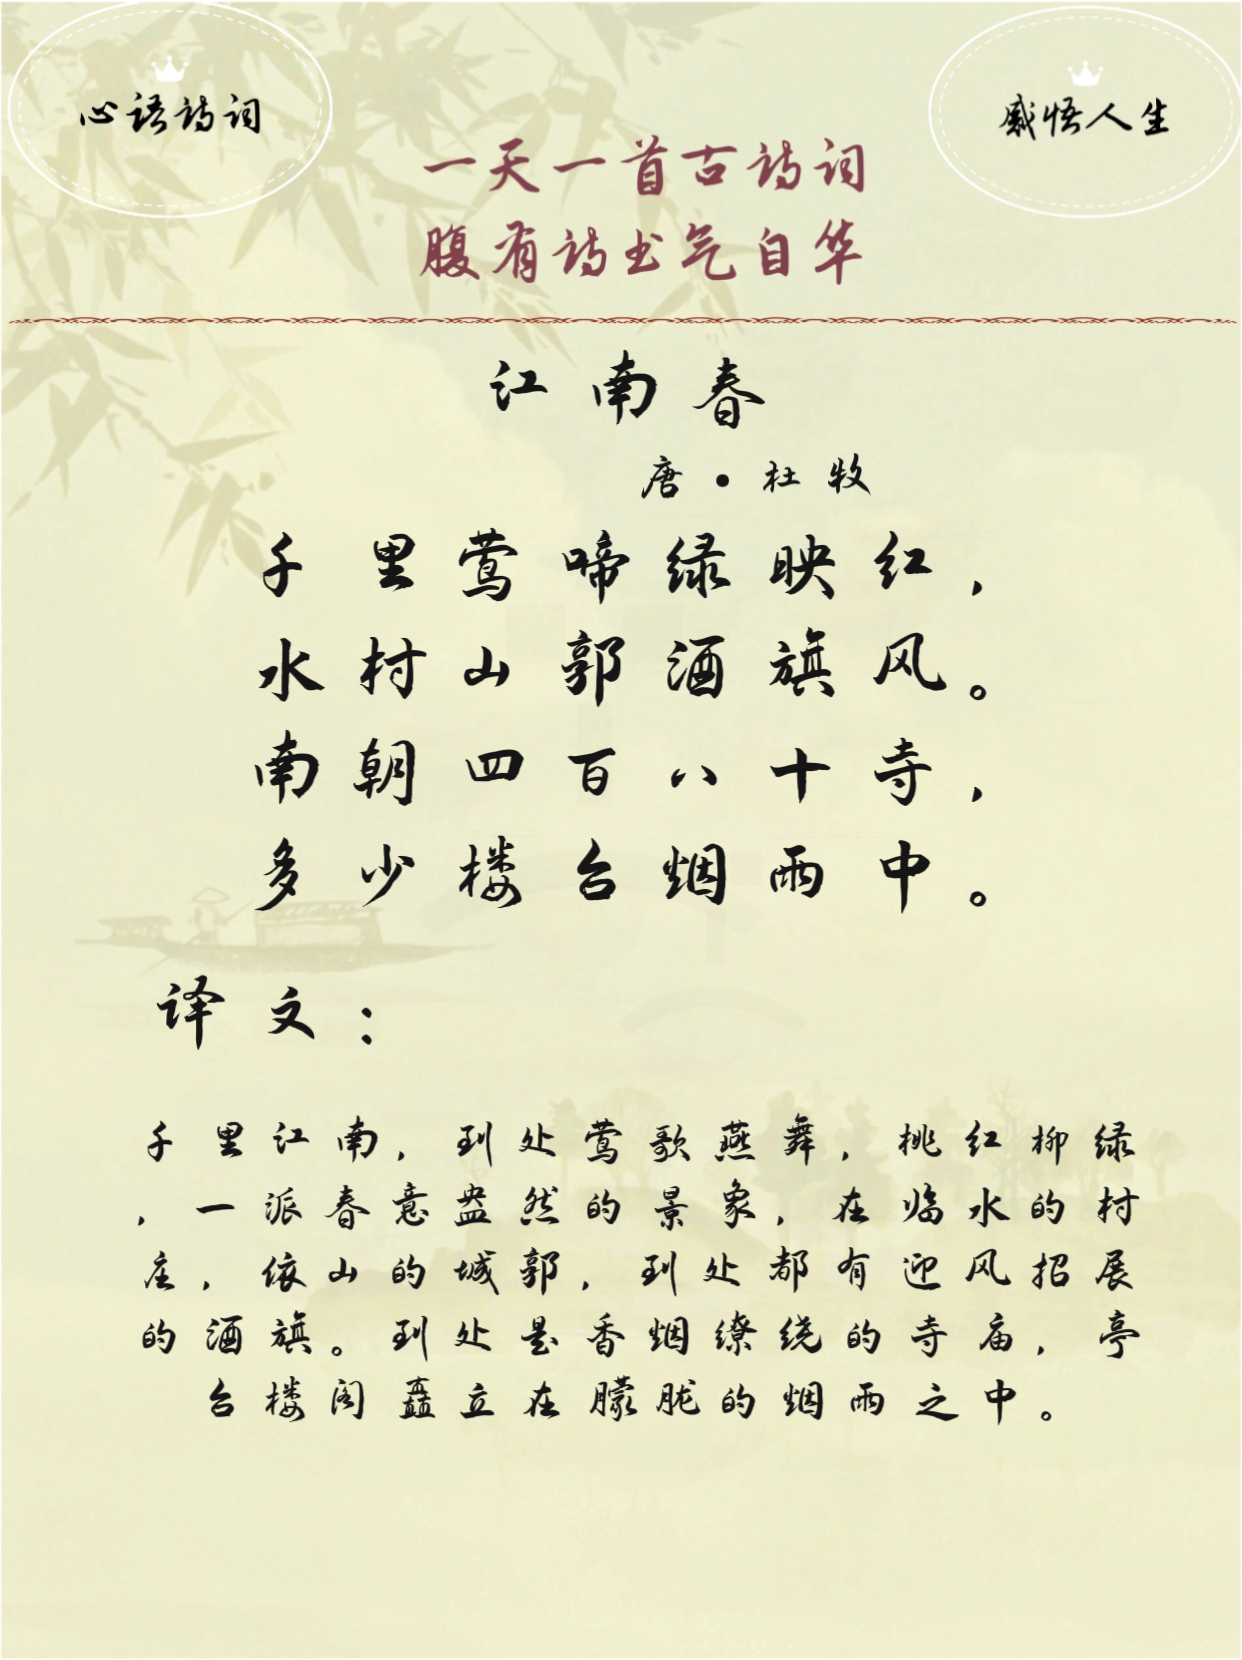 心语诗词
感悟人生
一天一首古诗词
腹有诗书气自华
江南春
唐·杜牧
千里莺啼绿映红，
水村山郭酒旗风。
南朝四百八十寺，
多少楼台烟雨中。
译文：
千里江南，到处莺歌燕舞，桃红柳绿
，一派春意盎然的景象，在临水的村
庄，依山的城郭，到处都有迎风招展
的酒旗。到处是香烟缭绕的寺庙，亭
台楼阁矗立在朦胧的烟雨之中。